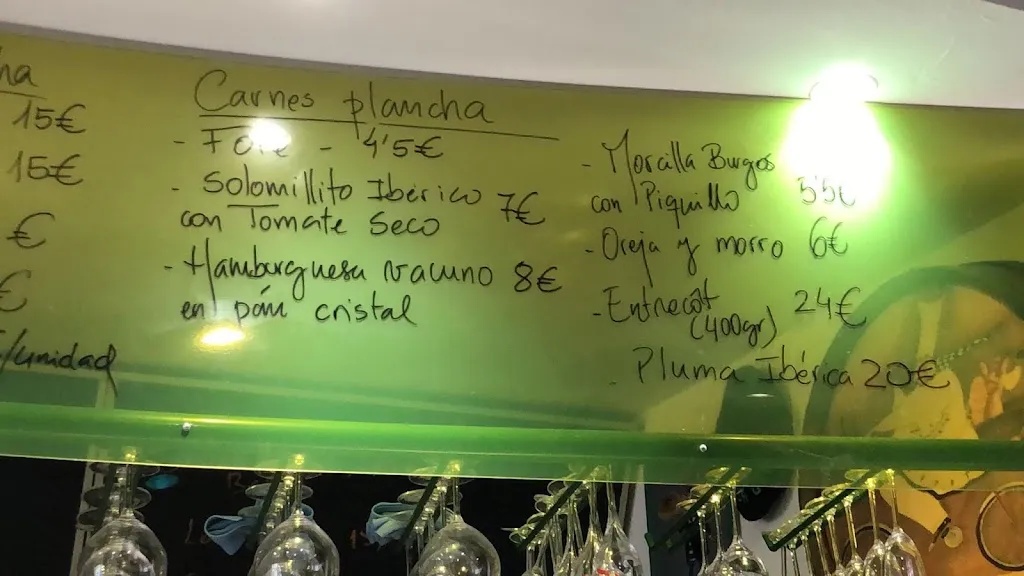 na
15€
15€
€
€
/unidad
Carnes plancha
- Foie - 4'5€
- Solomillito Ibérico
con Tomate Seco 7€
- Hamburguesa vacuno 8€
en pan cristal
- Morcilla Burgos
con Piquillo 5'5€
- Oreja y morro 6€
- Entrecot 24€
(400gr)
- Pluma Ibérica 20€